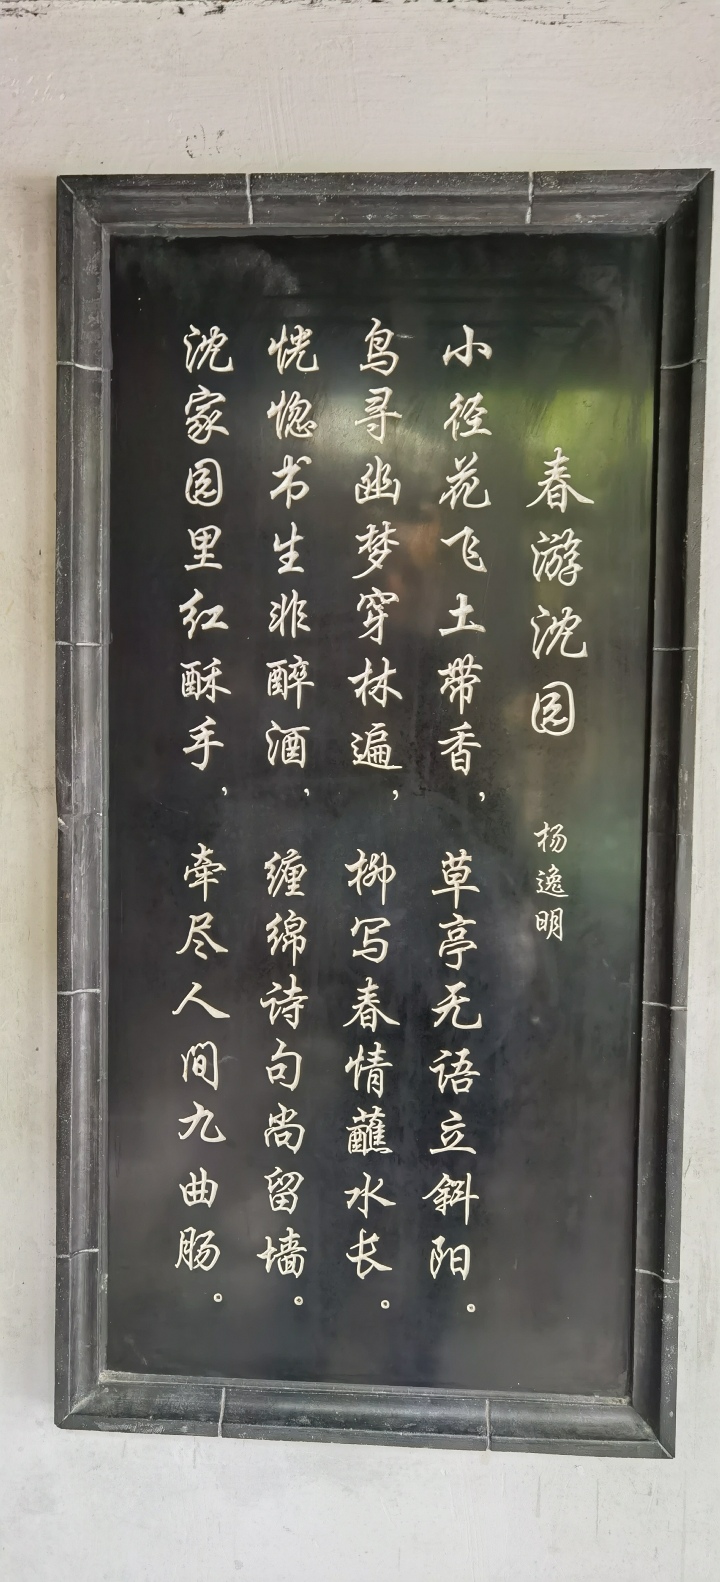 春游沈园 杨逸明
小径花飞土带香，草亭无语立斜阳。
鸟寻幽梦穿林遍，柳写春情蘸水长。
恍惚书生非醉酒，缠绵诗句尚留墙。
沈家园里红酥手，牵尽人间九曲肠。